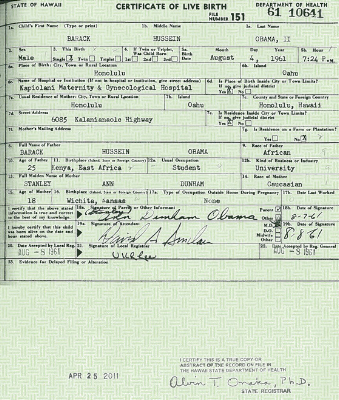 STATE OF HAWAII CERTIFICATE OF LIVE BIRTH DEPARTMENT OF HEALTH
FILE NUMBER 151 61 10641
1a. Child's First Name (Type or print) 1b. Middle Name 1c. Last Name
BARACK HUSSEIN OBAMA, II
2. Sex 3. This Birth 4. If Twin or Triplet, Was Child Born 5a. Birth Date Month Day Year 5b. Hour
Male Single Twin Triplet 1st 2nd 3rd August 4, 1961 7:24 P.M.
6a. Place of Birth: City, Town or Rural Location 6b. Island
Honolulu Oahu
6c. Name of Hospital or Institution (If not in hospital or institution, give street address) 6d. Is Place of Birth Inside City or Town Limits? If no, give judicial district
Kapiolani Maternity & Gynecological Hospital Yes No
7a. Usual Residence of Mother: City, Town or Rural Location 7b. Island 7c. County and State or Foreign Country
Honolulu Oahu Honolulu, Hawaii
7d. Street Address 7e. Is Residence Inside City or Town Limits? If no, give judicial district
6085 Kalanianaole Highway Yes No
7f. Mother's Mailing Address 7g. Is Residence on a Farm or Plantation?
Yes No
8. Full Name of Father 9. Race of Father
BARACK HUSSEIN OBAMA African
10. Age of Father 11. Birthplace (Island, State or Foreign Country) 12a. Usual Occupation 12b. Kind of Business or Industry
25 Kenya, East Africa Student University
13. Full Maiden Name of Mother 14. Race of Mother
STANLEY ANN DUNHAM Caucasian
15. Age of Mother 16. Birthplace (Island, State or Foreign Country) 17a. Type of Occupation Outside Home During Pregnancy 17b. Date Last Worked
18 Wichita, Kansas None
I certify that the above stated information is true and correct to the best of my knowledge. 18a. Signature of Parent or Other Informant Parent Other 18b. Date of Signature
Ann Dunham Obama 8-7-61
I hereby certify that this child was born alive on the date and hour stated above. 19a. Signature of Attendant M.D. D.O. Midwife Other 19b. Date of Signature
David A Sinclair 8-8-61
20. Date Accepted by Local Reg. 21. Signature of Local Registrar 22. Date Accepted by Reg. General
AUG -8 1961 AUG -8 1961
23. Evidence for Delayed Filing or Alteration
APR 25 2011
I CERTIFY THIS IS A TRUE COPY OR
ABSTRACT OF THE RECORD ON FILE IN
THE HAWAII STATE DEPARTMENT OF HEALTH
Alvin T. Onaka, Ph.D.
STATE REGISTRAR